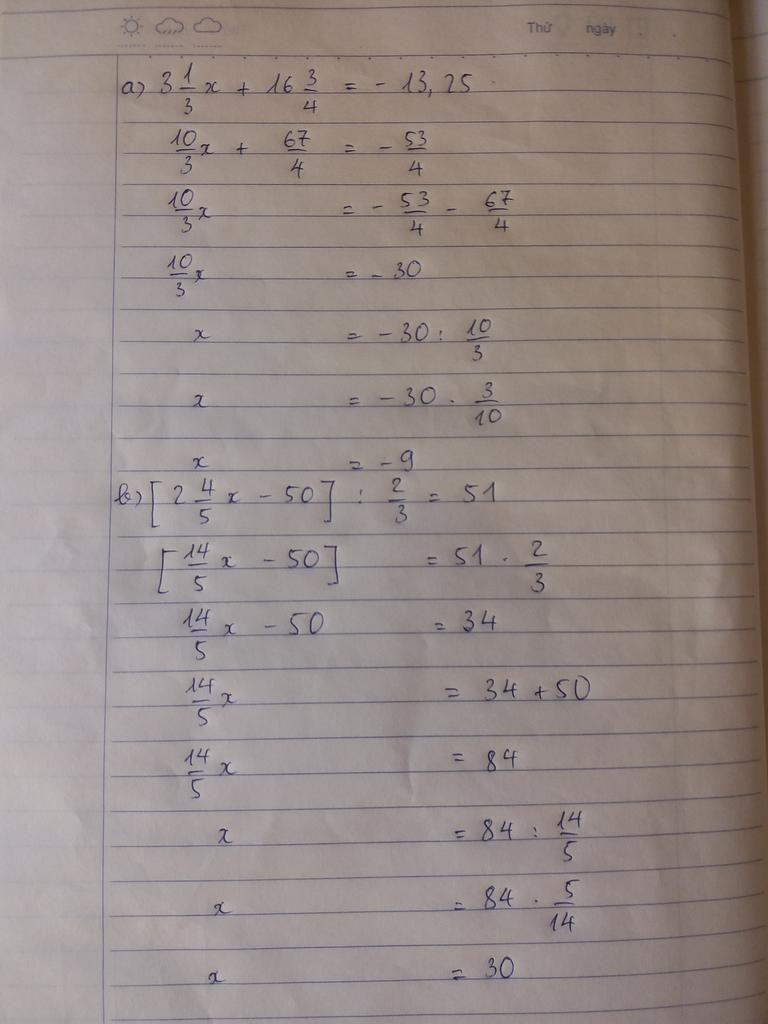 Thứ ngày
a) 3 1/3 x + 16 3/4 = - 13,25
10/3 x + 67/4 = - 53/4
10/3 x = - 53/4 - 67/4
10/3 x = - 30
x = - 30 : 10/3
x = - 30 . 3/10
x = - 9
b) [2 4/5 x - 50] : 2/3 = 51
[14/5 x - 50] = 51 . 2/3
14/5 x - 50 = 34
14/5 x = 34 + 50
14/5 x = 84
x = 84 : 14/5
x = 84 . 5/14
x = 30